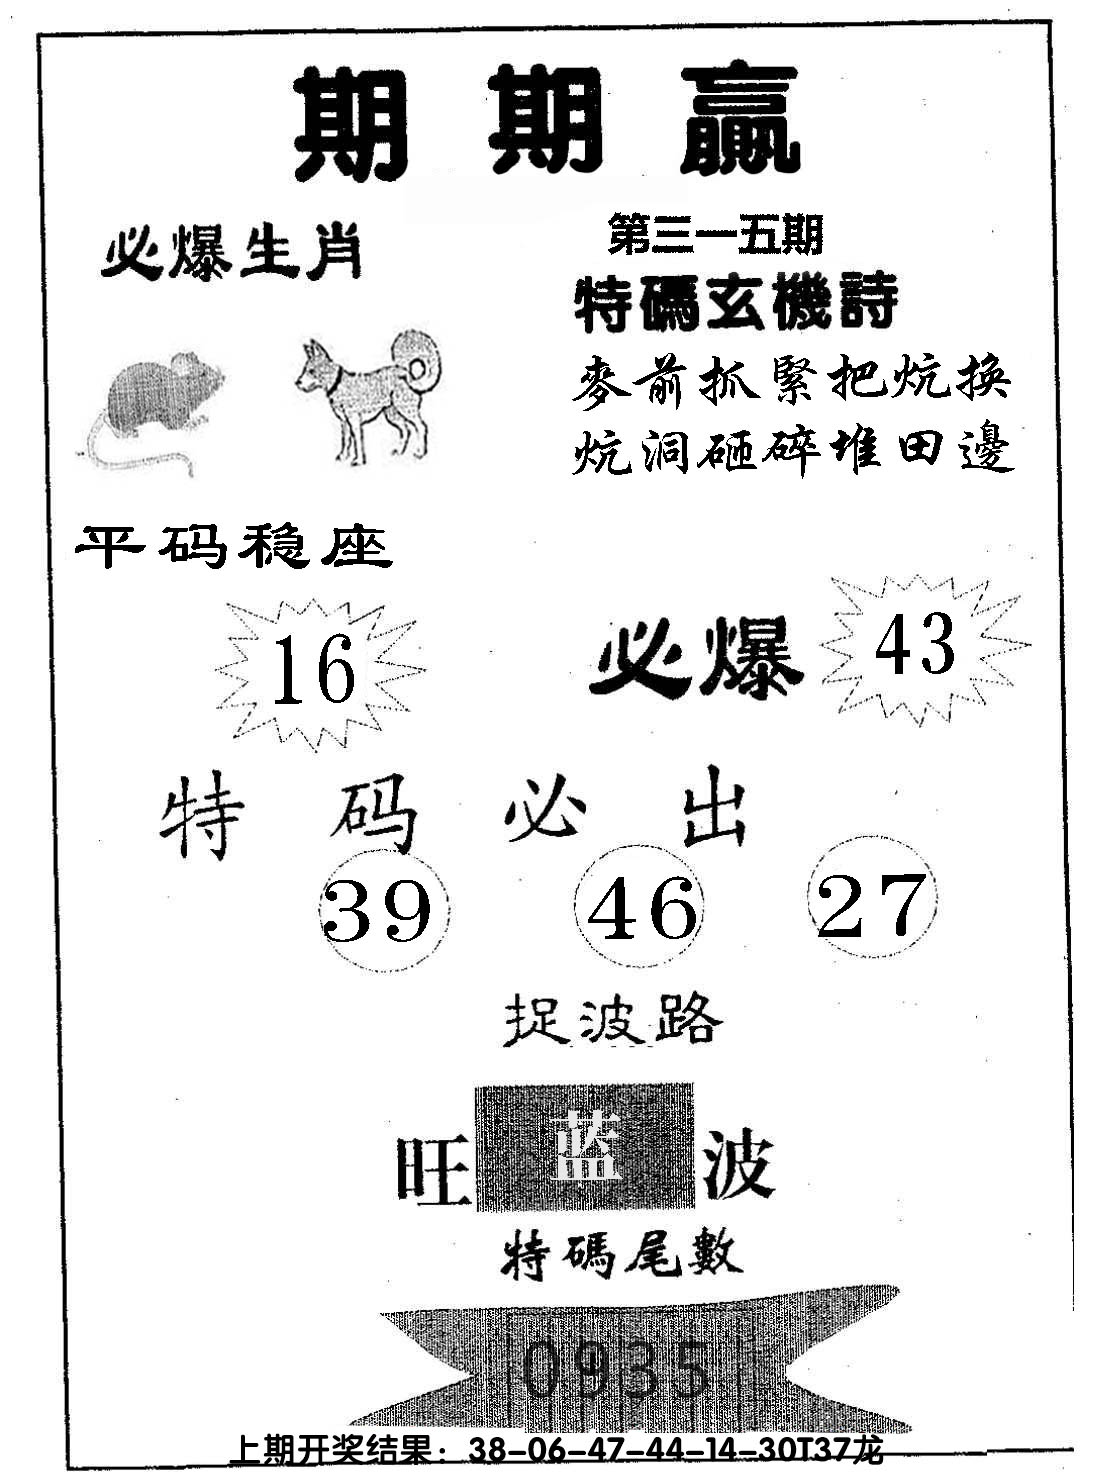 期期赢
必爆生肖
第三一五期
特碼玄機詩
麥前抓緊把炕換
炕洞砸碎堆田邊
平码稳座
16
必爆
43
特码必出
39 46 27
捉波路
旺蓝波
特碼尾數
0935
上期开奖结果：38-06-47-44-14-30T37龙